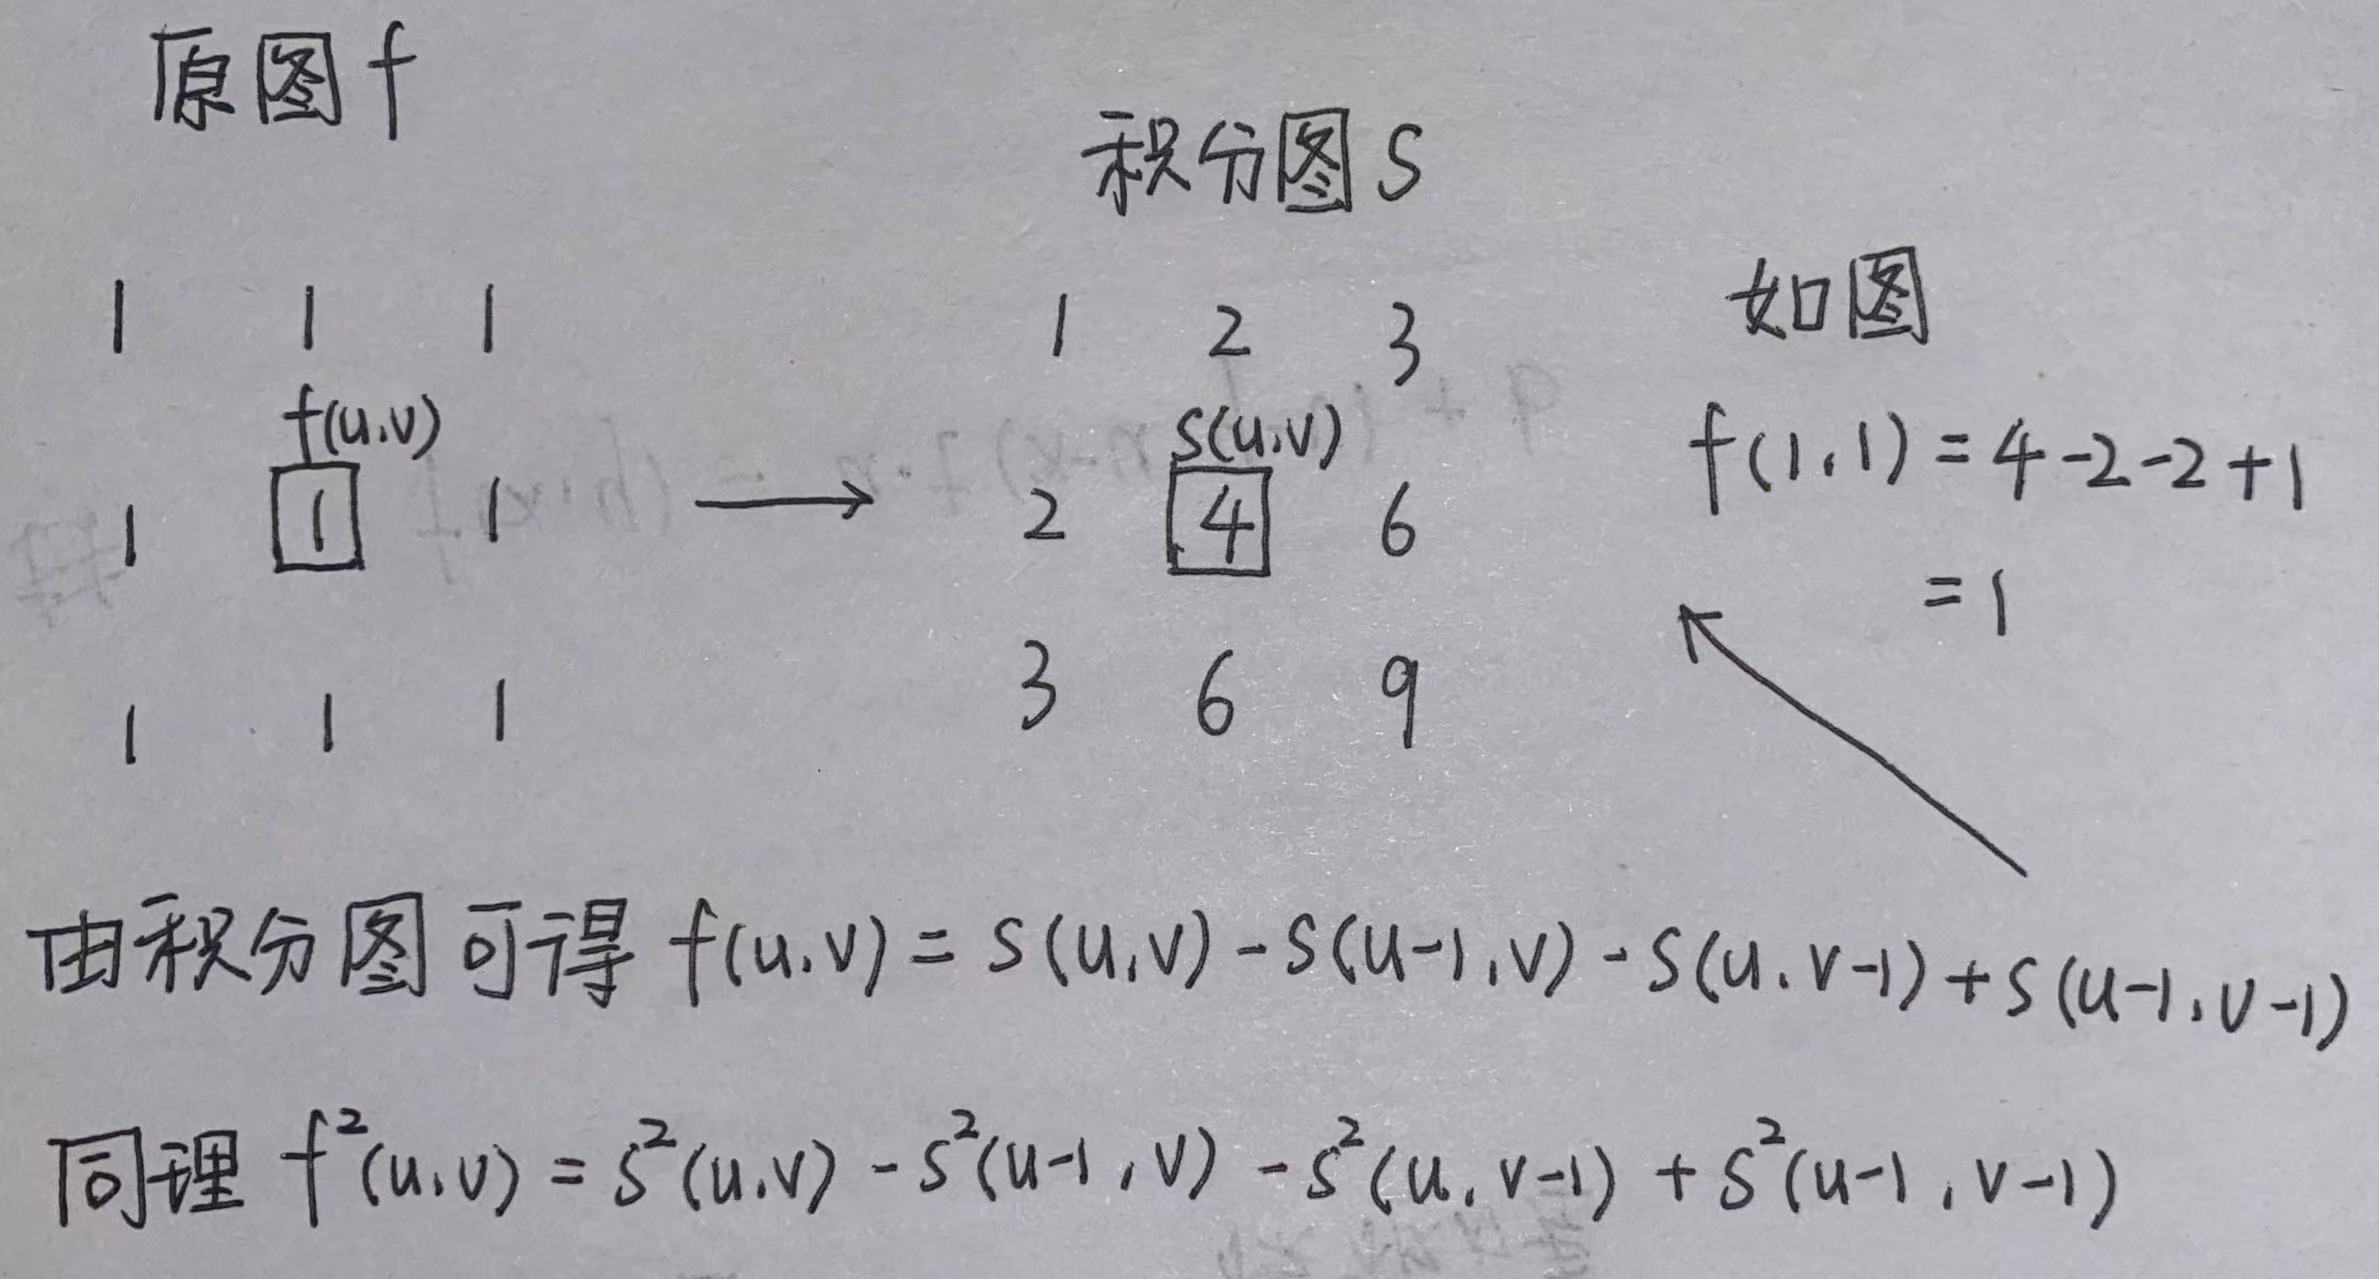 原图f
积分图S
1 1 1
f(u,v)
1 1 1
1 1 1
1 2 3
S(u,v)
2 4 6
3 6 9
如图
f(1,1)=4-2-2+1
=1
由积分图可得 f(u,v)=S(u,v)-S(u-1,v)-S(u,v-1)+S(u-1,v-1)
同理 f²(u,v)=S²(u,v)-S²(u-1,v)-S²(u,v-1)+S²(u-1,v-1)